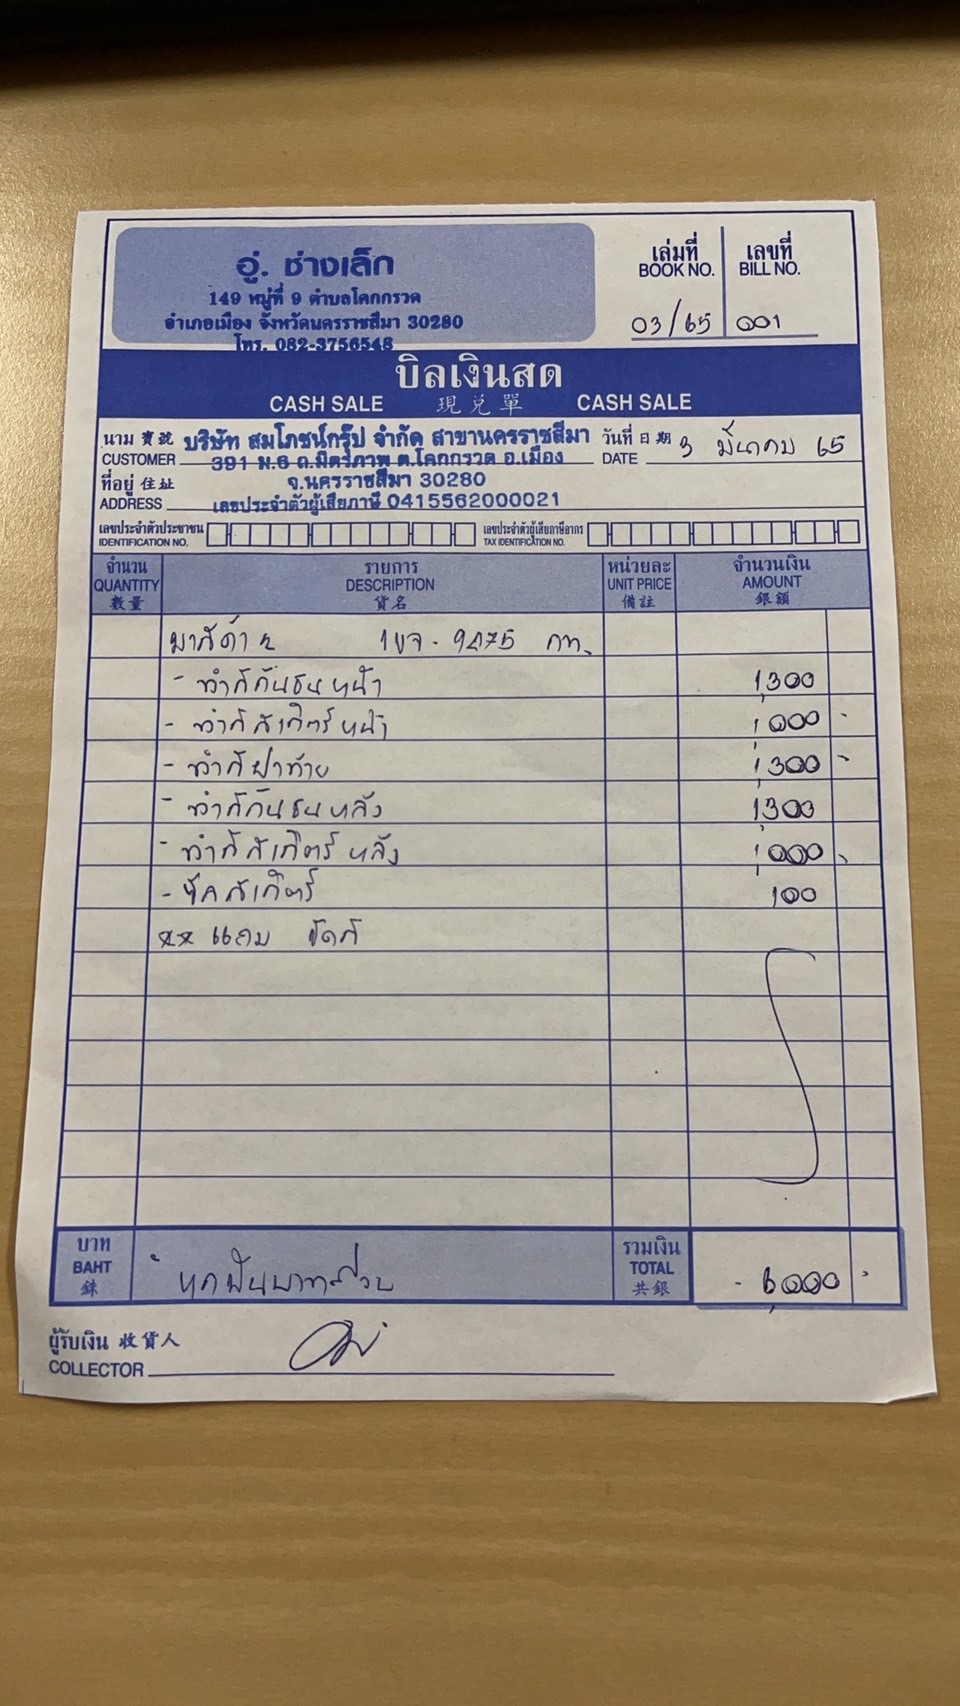 อู่. ช่างเล็ก
149 หมู่ที่ 9 ตำบลโคกกรวด
อำเภอเมือง จังหวัดนครราชสีมา 30280
โทร. 082-3756548
เล่มที่ เลขที่
BOOK NO. BILL NO.
03/65 001
บิลเงินสด
CASH SALE 現兌單 CASH SALE
นาม 寶號 บริษัท สมโภชน์กรุ๊ป จำกัด สาขานครราชสีมา วันที่ 日期 3 มีนาคม 65
CUSTOMER 391 ม.6 ถ.มิตรภาพ ต.โคกกรวด อ.เมือง DATE
ที่อยู่ 住址 จ.นครราชสีมา 30280
ADDRESS เลขประจำตัวผู้เสียภาษี 0415562000021
เลขประจำตัวประชาชน เลขประจำตัวผู้เสียภาษีอากร
IDENTIFICATION NO. TAX IDENTIFICATION NO.
จำนวน รายการ หน่วยละ จำนวนเงิน
QUANTITY DESCRIPTION UNIT PRICE AMOUNT
數量 貨名 備註 銀額
มาสด้า 2 1ขจ-9475 กท.
- ทำสีกันชนหน้า 1,300
- ทำสีสเกิตร์หน้า 1,000 -
- ทำสีฝาท้าย 1,300 -
- ทำสีกันชนหลัง 1,300
- ทำสีสเกิตร์หลัง 1,000
- สเกิตร์ 100
** แถม ขัดสี
บาท รวมเงิน
BAHT หกพันบาทถ้วน TOTAL - 6,000 -
銖 共銀
ผู้รับเงิน 收貨人
COLLECTOR